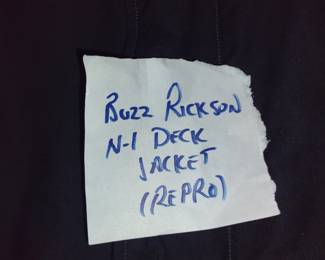 BUZZ RICKSON
N-1 DECK
JACKET
(REPRO)